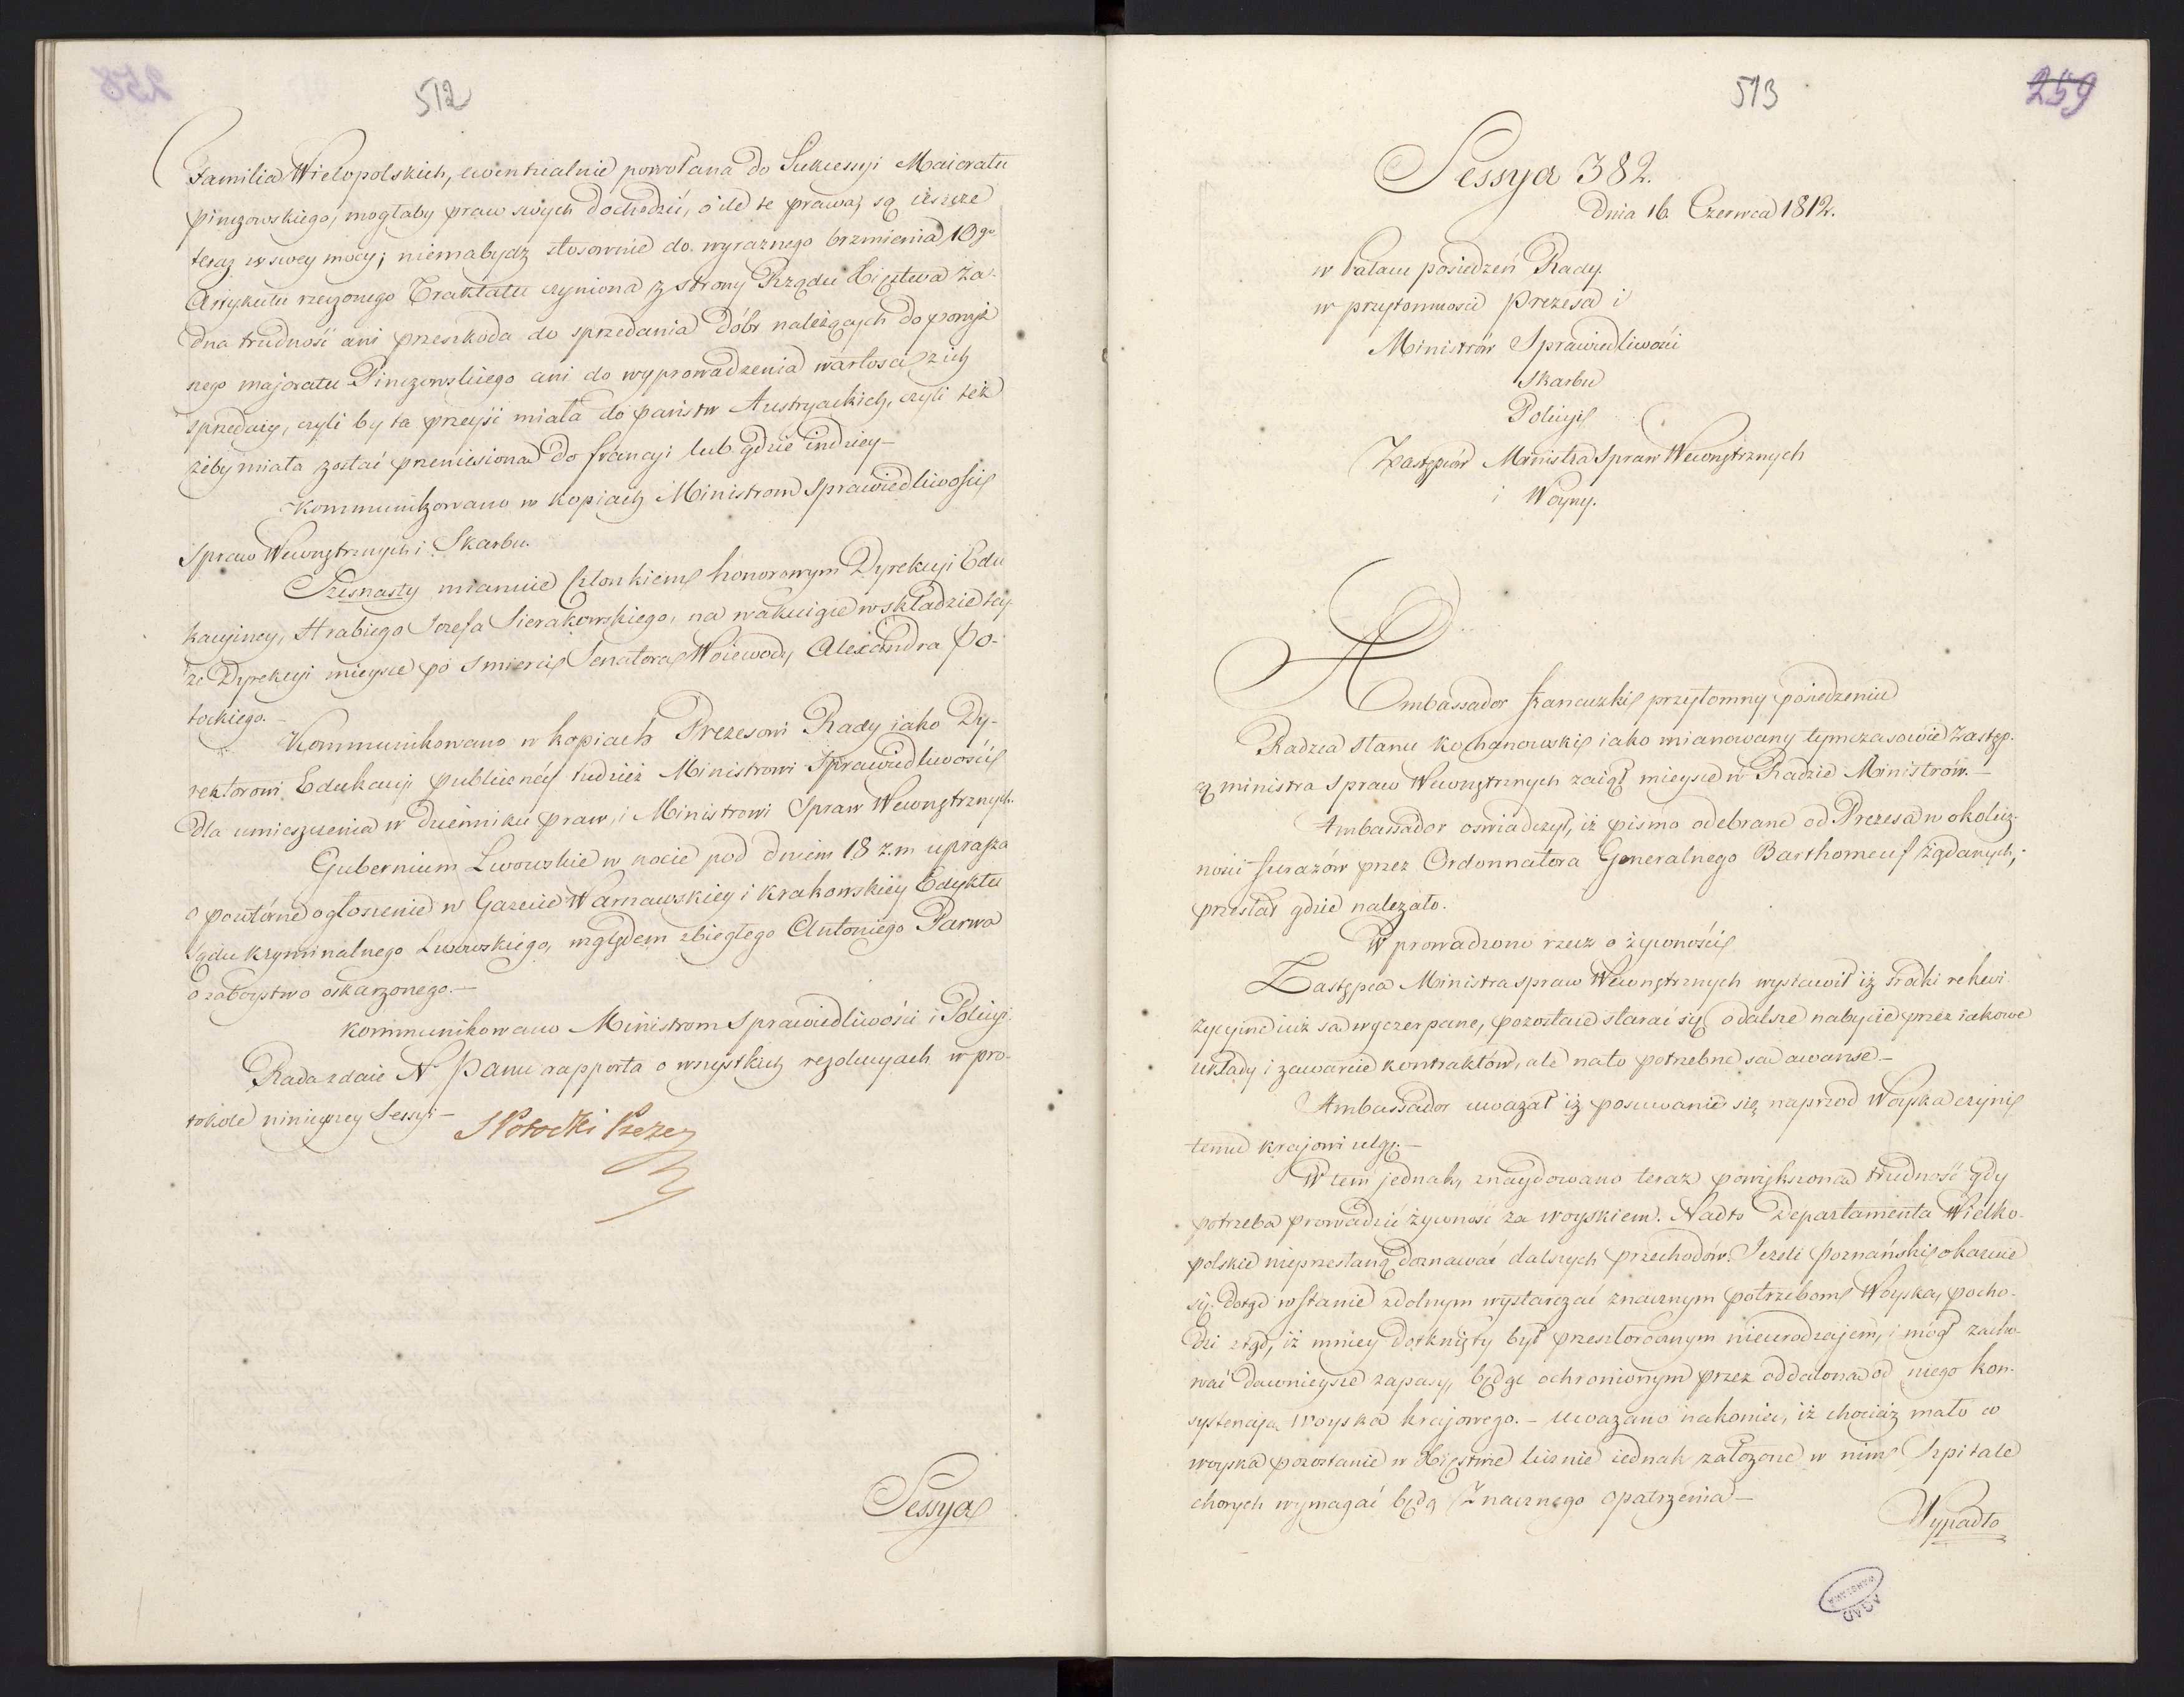 512
Familia Wielopolskich, ewentualnie powołana do Sukcessyi Maioratu
Pinczowskiego, mogłaby praw swych dochodzić, o ile te prawa, są ieszcze
teraz w swey mocy; niemabydz stosownie do wyraznego brzmienia 10go
Artykułu rzeczonego Traktatu czyniona z strony Rządu Xięztwa ża-
dna trudność ani przeszkoda do sprzedania dóbr należących do powyż
szego majoratu Pinczowskiego ani do wyprowadzenia wartosci z ich
sprzedaży, czyli by ta przeyść miała do państw Austryackich, czyli też
żeby miała zostać przeniesiona do Francyi lub gdzie indziey —
Kommunikowano w kopiach Ministrom Sprawiedliwości
Spraw Wewnętrznych i Skarbu.
Szesnasty mianuie Członkiem honorowym Dyrekcyi Edu
kacyiney, Hrabiego Jozefa Sierakowskiego, na wakuiące w składzie tey-
że Dyrekcyi mieysce po smierci Senatora Woiewody Alexandra Po-
tockiego. —
Kommunikowano w kopiach Prezesowi Rady iako Dy-
rektorowi Edukacyi publicznéy tudzież Ministrowi Sprawiedliwości
dla umieszczenia w dzienniku praw, i Ministrowi Spraw Wewnętrznych.
Gubernium Lwowskie w nocie pod dniem 18 z.m uprasza
o powtórne ogłoszenie w Gazecie Warszawskiey i Krakowskiey Edyktu
sądu kryminalnego Lwowskiego, względem zbiegłego Antoniego Parwa
o zaboystwo oskarzonego. —
Kommunikowano Ministrom Sprawiedliwości i Policyi.
Rada zdaie N. Panu rapporta o wszystkich rezolucyach w pro-
tokole ninieyszey Sessyi —
S Potocki Prezes
Sessya
513
259
Sessya 382.
Dnia 16. Czerwca 1812.
w Pałacu posiedzeń Rady.
w przytomności Prezesa i
Ministrów Sprawiedliwości
Skarbu
Policyi
Zastępców Ministra Spraw Wewnętrznych
i Woyny.
Ambassador francuzki przytomny posiedzeniu
Radzca Stanu Kochanowski iako mianowany tymczasowie Zastęp-
cą ministra Spraw Wewnętrznych zaiął mieysce w Radzie Ministrów. —
Ambassador oswiadczył, iż pismo odebrane od Prezesa w okolicz-
ności furazów przez Ordonnatora Generalnego Barthomeuf żądanych,
przesłał gdzie należało.
Wprowadzono rzecz o żywności
Zastępca Ministra spraw Wewnętrznych wystawił iż srodki rekwi
zycyine iuż są wyczerpane, pozostaie starać się o dalsze nabycie przez iakowe
układy i zawarcie kontraktów, ale na to potrzebne są awanse. —
Ambassador uważał iż posuwanie się naprzod Woyska czyni
temu krajowi ulgę. —
W tem jednak, znaydowano teraz powiększoną trudność gdy
potrzeba prowadzić żywność za woyskiem. Nadto Departamenta Wielko-
polskie nieprzestaną doznawać dalszych przechodów. Jeżeli Poznański okazuie
się dotąd w stanie zdolnym wystarczać znacznym potrzebom Woyska, pocho-
dzi ztąd, iż mniey dotknięty był przeszłorocznym nieurodzajem, i mógł zacho-
wać dawnieysze zapasy, będąc ochronionym przez oddaloną od niego kon-
systencyą Woyska krajowego. — Uważano nakoniec, iż chociaż mało co
woyska pozostanie w Xięstwie licznie iednak założone w nim Szpitale
chorych wymagać będą znacznego opatrzenia —
Wypadło
AGAD
WARSZAWA